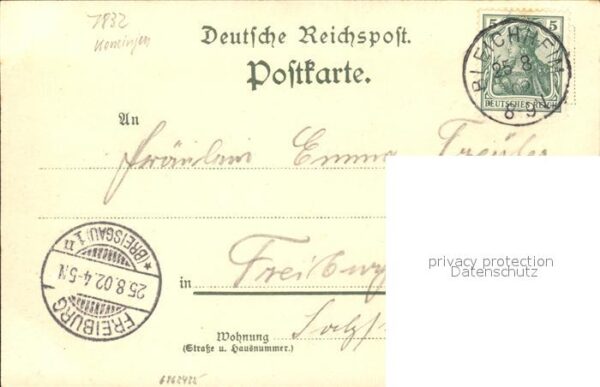 1832
Deutsche Reichspost.
Postkarte.
5 5
DEUTSCHES REICH
BLEICHHEIM
25 8
8-9
An
Fräulein Emma
privacy protection
Datenschutz
(BREISGAU) 1 n
25.8.02.4-5N
FREIBURG
in Freiburg
Wohnung
(Straße u. Hausnummer.)